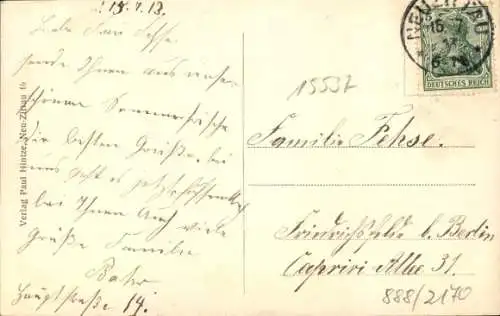 15.7.13.
Liebe Frau Fehse
sende Ihnen aus unse
schönen Sommerfrische
die besten Grüße, bei
uns geht es
bei Ihnen Auch viele
Grüße Familie
Hauptstraße 14.
Verlag Paul Hintze, Neu-Zittau 16
NEU ZITTAU
15.
DEUTSCHES REICH
15537
Familie Fehse.
Friedrichsfelde b. Berlin
Caprivi Allee 31.
888/2170